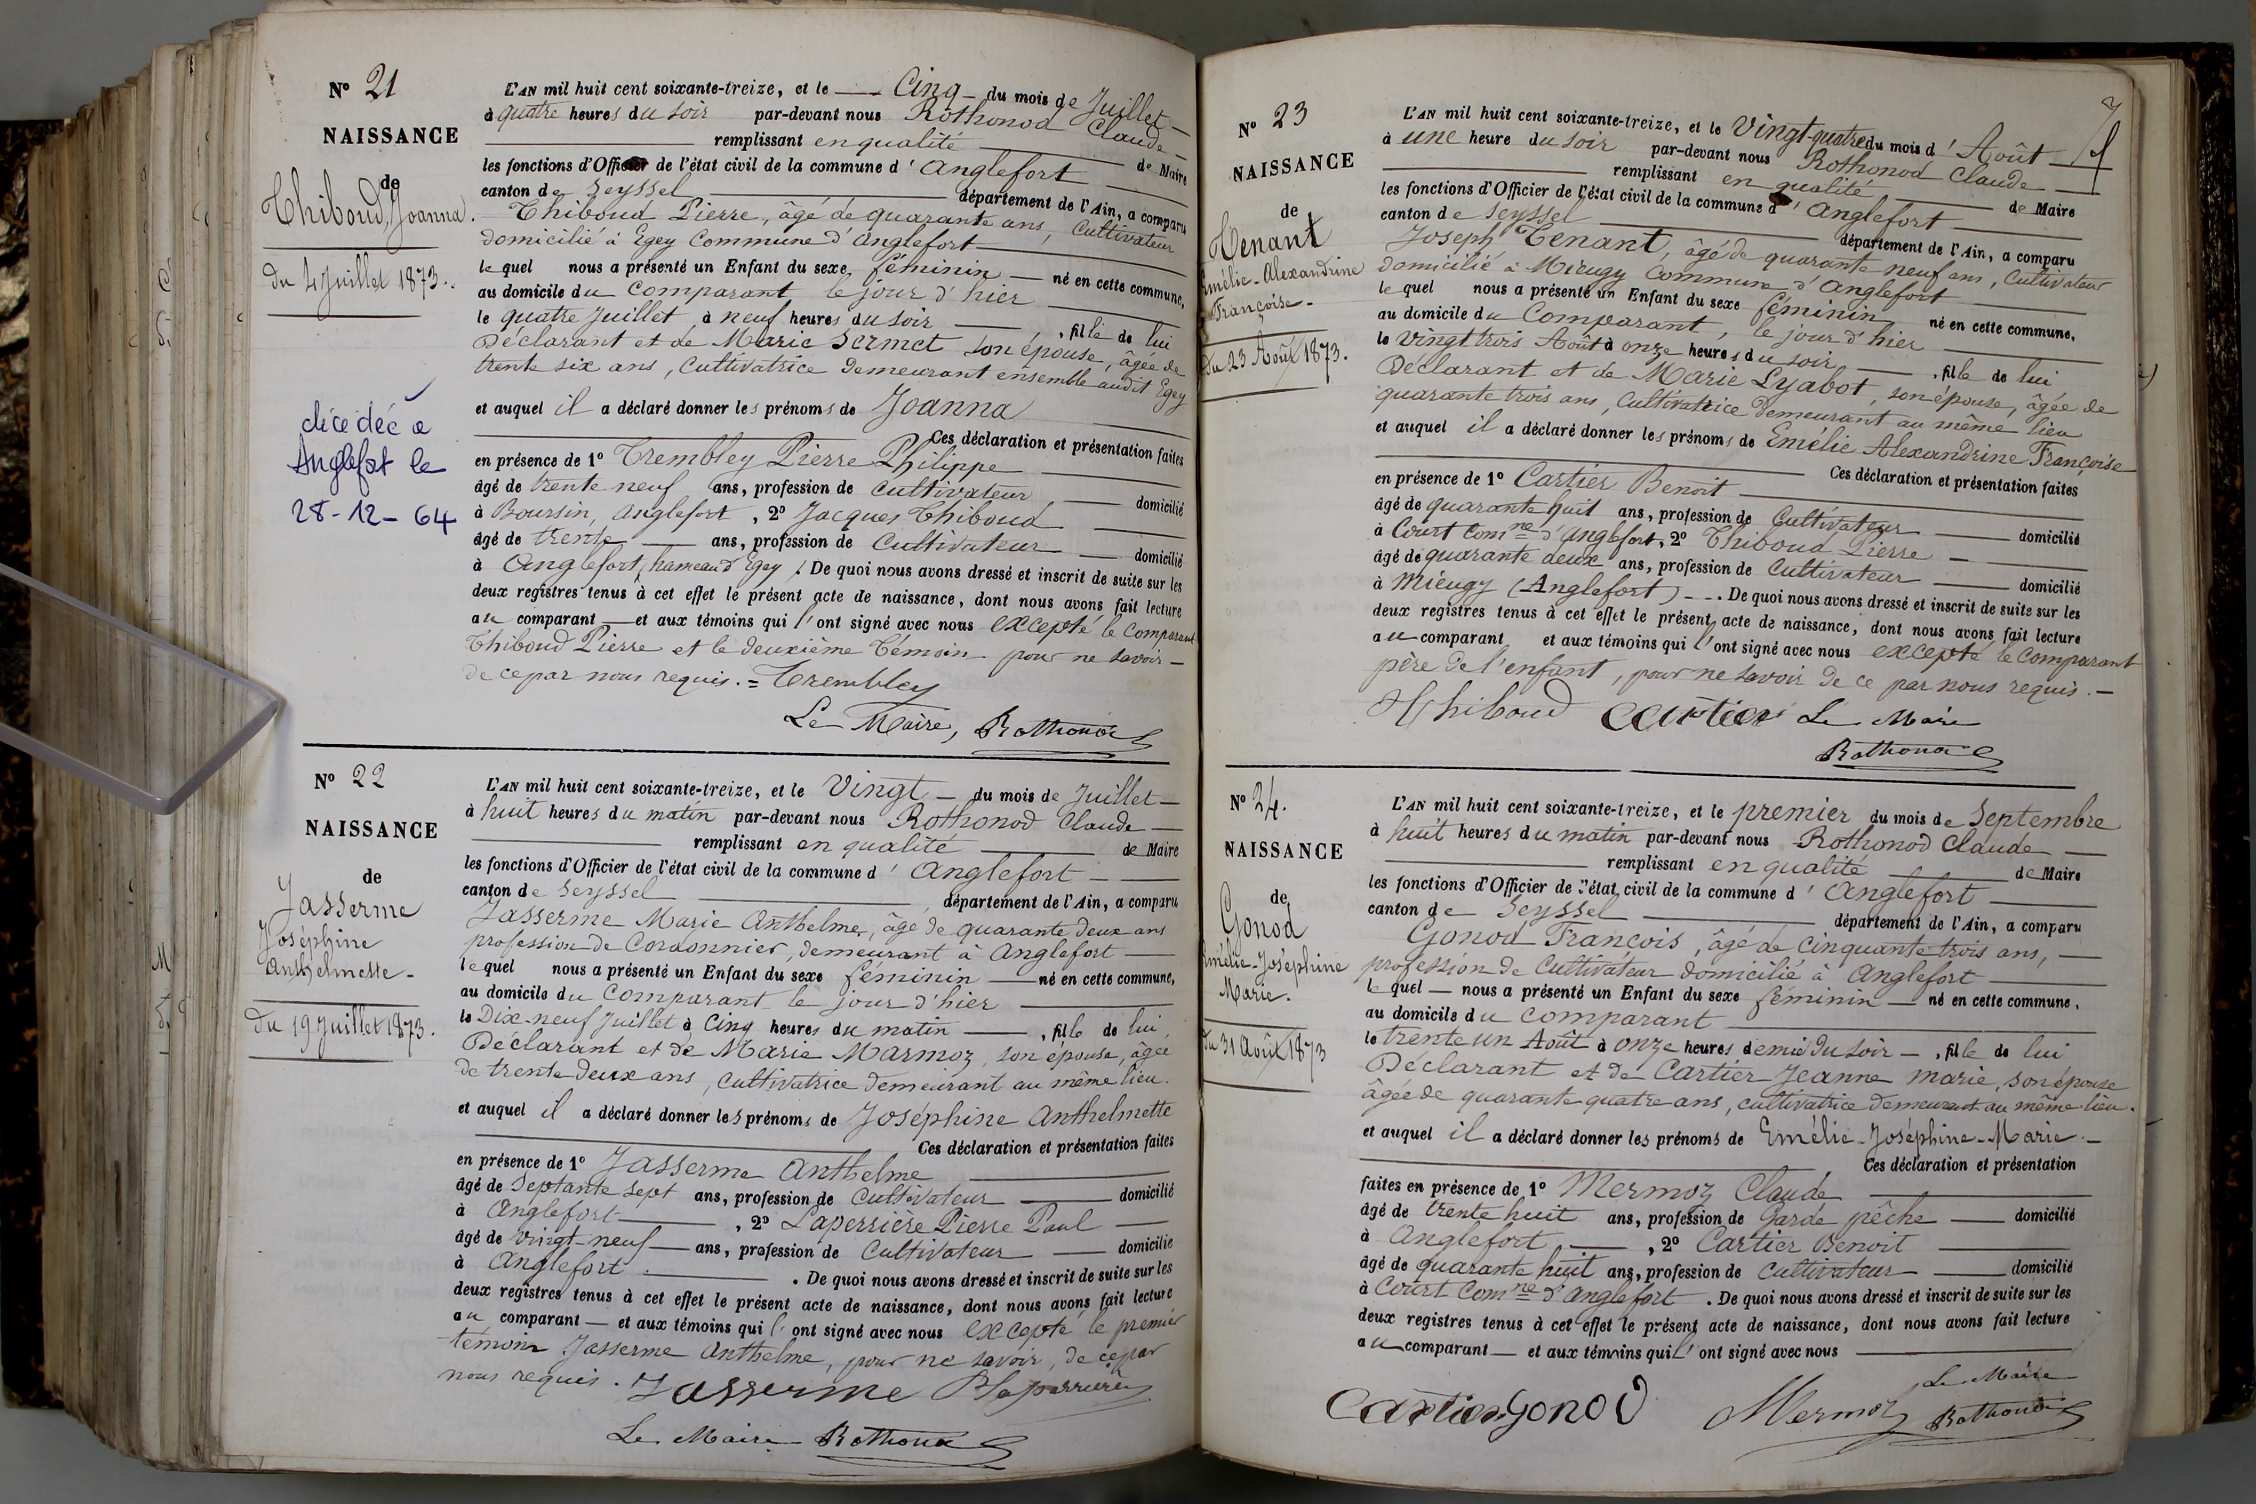 N° 21
NAISSANCE
de
Thiboud, Joanna.
du 4 Juillet 1873.
décédée à
Anglefort le
28-12-64
L'AN mil huit cent soixante-treize, et le Cinq du mois de Juillet
à quatre heures du soir par-devant nous Rothonod Claude
remplissant en qualité de Maire
les fonctions d'Officier de l'état civil de la commune d'Anglefort
canton de Seyssel département de l'Ain, a comparu
Thiboud Pierre, âgé de quarante ans, Cultivateur
domicilié à Egey Commune d'Anglefort
lequel nous a présenté un Enfant du sexe féminin né en cette commune,
au domicile du Comparant le jour d'hier
le quatre Juillet à neuf heures du soir, fille de lui
Déclarant et de Marie Sermet son épouse, âgée de
trente six ans, Cultivatrice demeurant ensemble audit Egey
et auquel il a déclaré donner les prénoms de Joanna
Ces déclaration et présentation faites
en présence de 1° Trembley Pierre Philippe
âgé de trente neuf ans, profession de Cultivateur domicilié
à Boursin, Anglefort, 2° Jacques Thiboud
âgé de trente ans, profession de Cultivateur domicilié
à Anglefort, hameau d'Egey. De quoi nous avons dressé et inscrit de suite sur les
deux registres tenus à cet effet le présent acte de naissance, dont nous avons fait lecture
au comparant et aux témoins qui l'ont signé avec nous excepté le Comparant
Thiboud Pierre et le deuxième Témoin pour ne savoir
de ce par nous requis. = Trembley
Le Maire, Rothonod
N° 22
NAISSANCE
de
Jasserme
Joséphine
Anthelmette
du 19 Juillet 1873.
L'AN mil huit cent soixante-treize, et le Vingt du mois de Juillet
à huit heures du matin par-devant nous Rothonod Claude
remplissant en qualité de Maire
les fonctions d'Officier de l'état civil de la commune d'Anglefort
canton de Seyssel département de l'Ain, a comparu
Jasserme Marie Anthelme, âgé de quarante deux ans
profession de Cordonnier, demeurant à Anglefort
lequel nous a présenté un Enfant du sexe féminin né en cette commune,
au domicile du Comparant le jour d'hier
le Dix-neuf Juillet à Cinq heures du matin, fille de lui,
Déclarant et de Marie Marmoz, son épouse, âgée
de trente deux ans, Cultivatrice demeurant au même lieu.
et auquel il a déclaré donner les prénoms de Joséphine Anthelmette
Ces déclaration et présentation faites
en présence de 1° Jasserme Anthelme
âgé de Septante sept ans, profession de Cultivateur domicilié
à Anglefort, 2° Laperrière Pierre Paul
âgé de vingt-neuf ans, profession de Cultivateur domicilié
à Anglefort. De quoi nous avons dressé et inscrit de suite sur les
deux registres tenus à cet effet le présent acte de naissance, dont nous avons fait lecture
au comparant et aux témoins qui l'ont signé avec nous excepté le premier
témoin Jasserme Anthelme, pour ne savoir, de ce par
nous requis. Jasserme Plaperrière
Le Maire Rothonod
N° 23
NAISSANCE
de
Tenant
Emélie-Alexandrine
Françoise
du 23 Août 1873.
L'AN mil huit cent soixante-treize, et le Vingt-quatre du mois d'Août
à une heure du soir par-devant nous Rothonod Claude
remplissant en qualité de Maire
les fonctions d'Officier de l'état civil de la commune d'Anglefort
canton de Seyssel département de l'Ain, a comparu
Joseph Tenant, âgé de quarante neuf ans, Cultivateur
domicilié à Mieugy Commune d'Anglefort
lequel nous a présenté un Enfant du sexe féminin né en cette commune,
au domicile du Comparant, le jour d'hier
le vingt trois Août à onze heures du soir, fille de lui
Déclarant et de Marie Lyabot, son épouse, âgée de
quarante trois ans, Cultivatrice demeurant au même lieu
et auquel il a déclaré donner les prénoms de Emélie Alexandrine Françoise
Ces déclaration et présentation faites
en présence de 1° Cartier Benoit
âgé de quarante huit ans, profession de Cultivateur domicilié
à Court Comne d'Anglefort, 2° Thiboud Pierre
âgé de quarante deux ans, profession de Cultivateur domicilié
à Mieugy (Anglefort). De quoi nous avons dressé et inscrit de suite sur les
deux registres tenus à cet effet le présent acte de naissance, dont nous avons fait lecture
au comparant et aux témoins qui l'ont signé avec nous excepté le Comparant
père de l'enfant, pour ne savoir de ce par nous requis.
Thiboud Cartier Le Maire
Rothonod
N° 24.
NAISSANCE
de
Gonod
Emélie-Joséphine
Marie.
du 31 Août 1873
L'AN mil huit cent soixante-treize, et le premier du mois de Septembre
à huit heures du matin par-devant nous Rothonod Claude
remplissant en qualité de Maire
les fonctions d'Officier de l'état civil de la commune d'Anglefort
canton de Seyssel département de l'Ain, a comparu
Gonod François, âgé de Cinquante trois ans,
profession de Cultivateur domicilié à Anglefort
lequel nous a présenté un Enfant du sexe féminin né en cette commune,
au domicile du Comparant
le trente un Août à onze heures demie du soir, fille de lui
Déclarant et de Cartier Jeanne Marie, son épouse
âgée de quarante quatre ans, cultivatrice demeurant au même lieu.
et auquel il a déclaré donner les prénoms de Emélie-Joséphine-Marie
Ces déclaration et présentation
faites en présence de 1° Mermoz Claude
âgé de trente huit ans, profession de Garde pêche domicilié
à Anglefort, 2° Cartier Benoit
âgé de quarante huit ans, profession de Cultivateur domicilié
à Court Comne d'Anglefort. De quoi nous avons dressé et inscrit de suite sur les
deux registres tenus à cet effet le présent acte de naissance, dont nous avons fait lecture
au comparant et aux témoins qui l'ont signé avec nous
Le Maire
Cartier Gonod Mermoz Rothonod